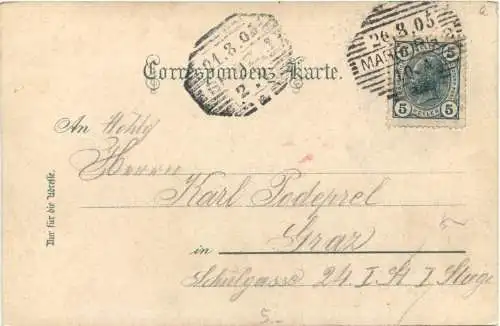 26.8.05
MARBURG
5 5
HELLER
Correspondenz-Karte.
An Wohlg
Herrn
Karl Podeprel
in Graz
Schulgasse 24 I. St 7 Stiege
Nur für die Adresse.
5.-